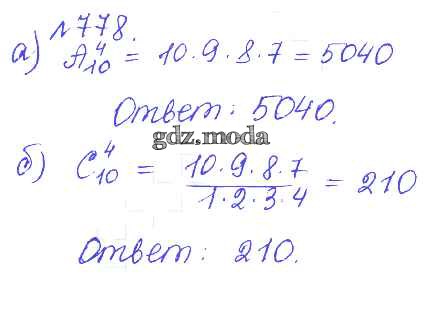 №778.
а) A₁₀⁴ = 10·9·8·7 = 5040
Ответ: 5040.
gdz.moda
б) C₁₀⁴ = 10·9·8·7 / 1·2·3·4 = 210
Ответ: 210.